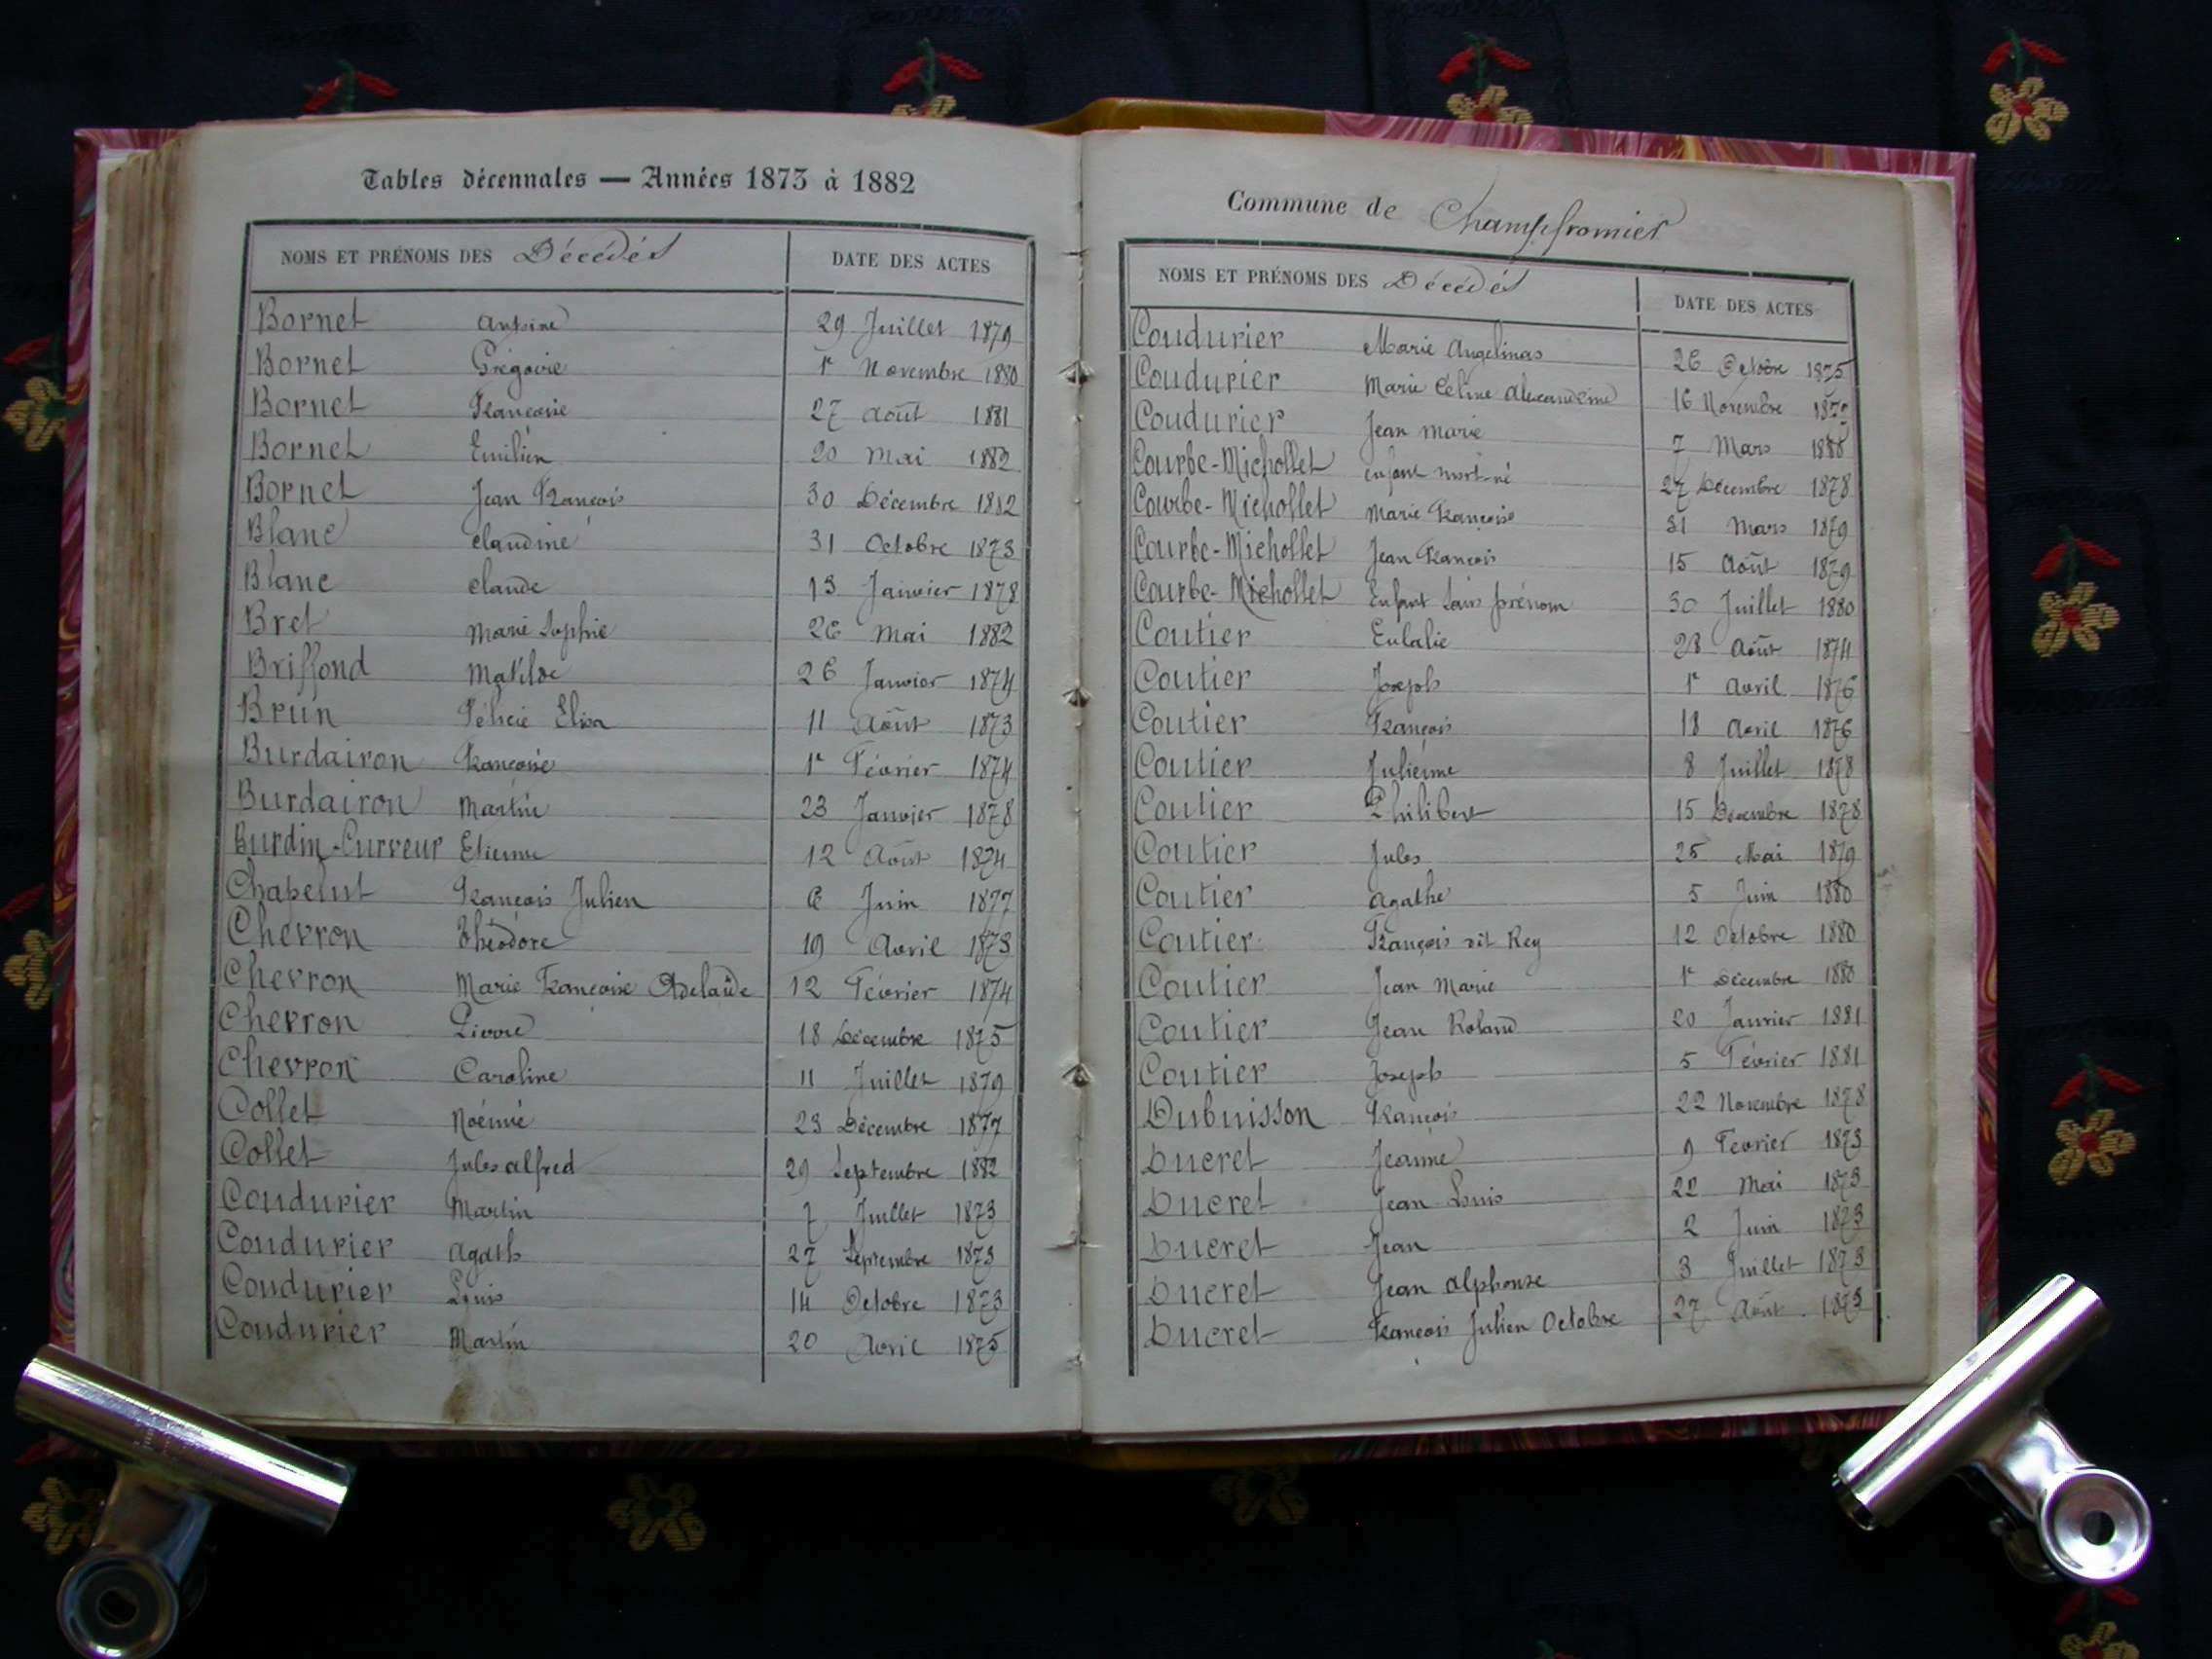 Tables décennales — Années 1873 à 1882
NOMS ET PRÉNOMS DES Décédés DATE DES ACTES
Bornet Antoine 29 Juillet 1879
Bornet Grégoire 1r Novembre 1880
Bornet Françoise 27 Août 1881
Bornet Emilien 20 Mai 1882
Bornet Jean François 30 Décembre 1882
Blanc Claudine 31 Octobre 1873
Blanc Claude 13 Janvier 1878
Bret Marie Sophie 26 Mai 1882
Briffond Matilde 26 Janvier 1874
Brun Félicie Elisa 11 Août 1873
Burdairon Françoise 1r Février 1874
Burdairon Martin 23 Janvier 1878
Burdin-Curveur Etienne 12 Août 1874
Chapelut François Julien 6 Juin 1877
Chevron Théodore 19 Avril 1873
Chevron Marie Françoise Adelaïde 12 Février 1874
Chevron Pierre 18 Décembre 1875
Chevron Caroline 11 Juillet 1879
Collet Noémie 23 Décembre 1877
Collet Jules alfred 29 Septembre 1882
Coudurier Martin 7 Juillet 1873
Coudurier Agath 27 Septembre 1873
Coudurier Louis 14 Octobre 1873
Coudurier Martin 20 Avril 1875
Commune de Champfromier
NOMS ET PRÉNOMS DES Décédés DATE DES ACTES
Coudurier Marie Angelinas 26 Octobre 1875
Coudurier Marie Céline Alexandrine 16 Novembre
Coudurier Jean Marie 7 Mars
Courbe-Michollet enfant mort-né 27 Décembre 1878
Courbe-Michollet Marie Françoise 31 Mars 1879
Courbe-Michollet Jean François 15 Août 1879
Courbe-Michollet Enfant sans prénom 30 Juillet 1880
Coutier Eulalie 28 Août 1874
Coutier Joseph 1r Avril 1876
Coutier François 18 Avril 1876
Coutier Julienne 8 Juillet 1878
Coutier Philibert 15 Décembre 1878
Coutier Jules 25 Mai 1879
Coutier Agathe 5 Juin 1880
Coutier François dit Rey 12 Octobre 1880
Coutier Jean Marie 1r Décembre 1880
Coutier Jean Roland 20 Janvier 1881
Coutier Joseph 5 Février 1881
Dubuisson François 22 Novembre 1878
Ducret Jeanne 9 Fevrier 1873
Ducret Jean Louis 22 Mai 1873
Ducret Jean 2 Juin 1873
Ducret Jean Alphonse 3 Juillet 1873
Ducret François Julien Octobre 27 Août 1873